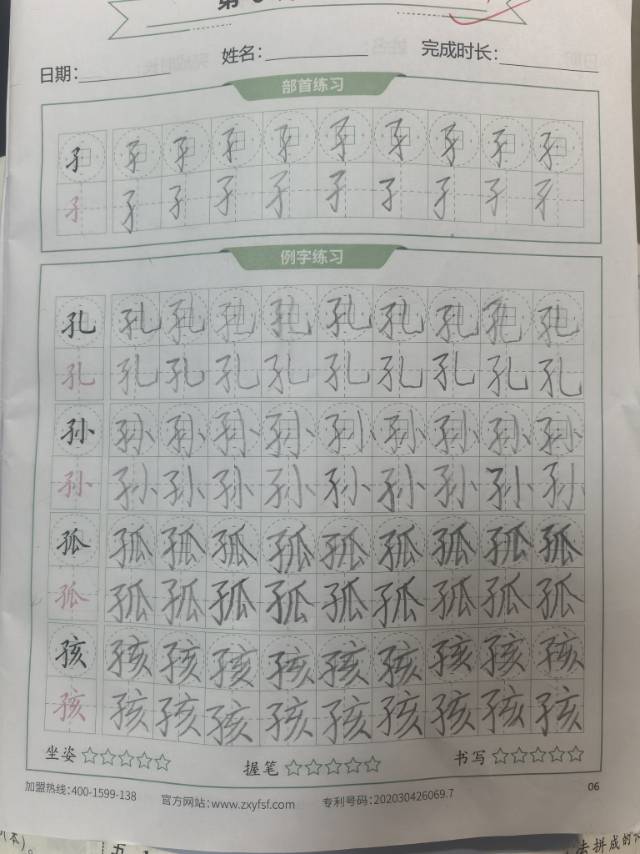 第
日期: 姓名: 完成时长:
部首练习
孑 孑 孑 孑 孑 孑 孑 孑 孑 孑
孑 孑 孑 孑 孑 孑 孑 孑 孑 孑
例字练习
孔 孔 孔 孔 孔 孔 孔 孔 孔 孔
孔 孔 孔 孔 孔 孔 孔 孔 孔 孔
孙 孙 孙 孙 孙 孙 孙 孙 孙 孙
孙 孙 孙 孙 孙 孙 孙 孙 孙 孙
孤 孤 孤 孤 孤 孤 孤 孤 孤 孤
孤 孤 孤 孤 孤 孤 孤 孤 孤 孤
孩 孩 孩 孩 孩 孩 孩 孩 孩 孩
孩 孩 孩 孩 孩 孩 孩 孩 孩 孩
坐姿☆☆☆☆☆ 握笔☆☆☆☆☆ 书写☆☆☆☆☆
加盟热线:400-1599-138 官方网站:www.zxyfsf.com 专利号码:202030426069.7 06
去拼成的